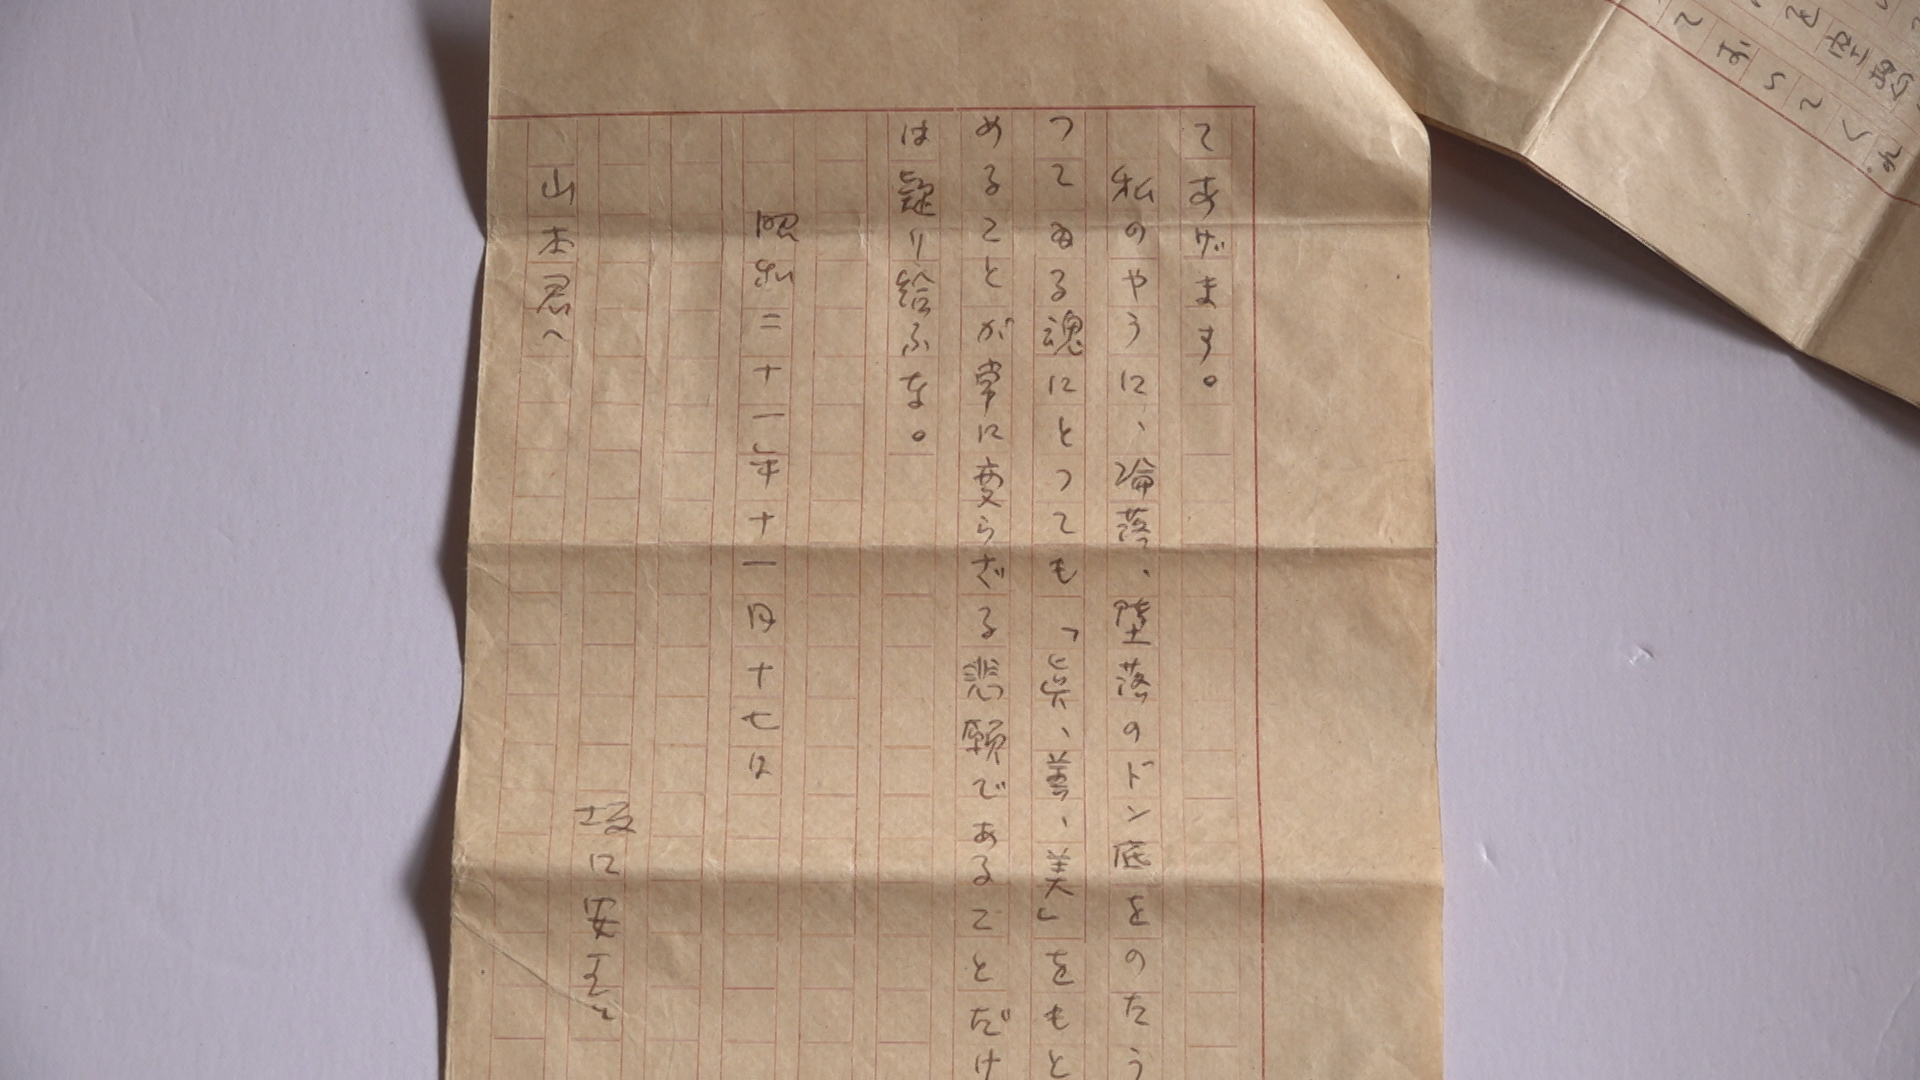 てあげます。
私のやうに、淪落、堕落のドン底をのたう
つてゐる魂にとつても「眞、善、美」をもと
めることが常に変らざる悲願であることだけ
は疑り給ふな。
昭和二十一年十一月十七日
坂口安吾
山本君へ